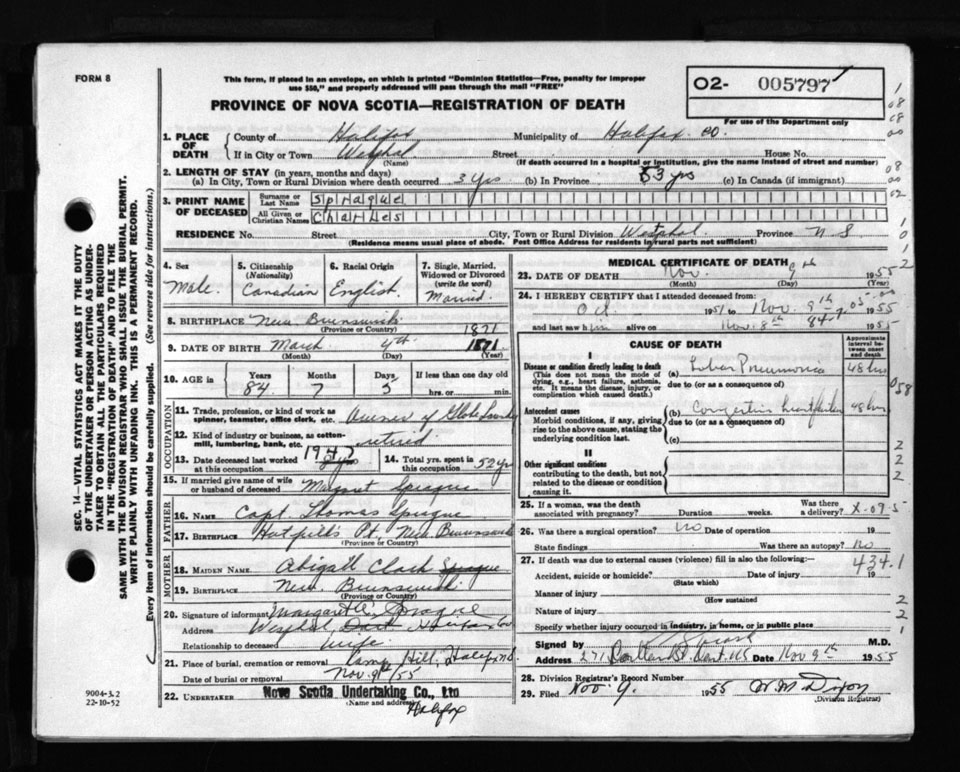 FORM 8
This form, if placed in an envelope, on which is printed "Dominion Statistics—Free, penalty for improper
use $50," and properly addressed will pass through the mail "FREE"
O2- 005797
For use of the Department only
PROVINCE OF NOVA SCOTIA—REGISTRATION OF DEATH
1. PLACE OF DEATH
County of Halifax Municipality of Halifax co.
If in City or Town Westphal Street House No.
(Name) (If death occurred in a hospital or institution, give the name instead of street and number)
2. LENGTH OF STAY (in years, months and days)
(a) In City, Town or Rural Division where death occurred 3 yrs. (b) In Province 53 yrs (c) In Canada (if immigrant)
3. PRINT NAME OF DECEASED
Surname or Last Name Sprague
All Given or Christian Names Charles
RESIDENCE No. Street City, Town or Rural Division Westphal. Province N S
(Residence means usual place of abode. Post Office Address for residents in rural parts not sufficient)
4. Sex
Male.
5. Citizenship
(Nationality)
Canadian
6. Racial Origin
English.
7. Single, Married, Widowed or Divorced
(write the word)
Married.
8. BIRTHPLACE New Brunswick
(Province or Country)
9. DATE OF BIRTH March 4th 1871 1871
(Month) (Day) (Year)
10. AGE in
Years Months Days If less than one day old
84 7 5 hrs. or min.
OCCUPATION
11. Trade, profession, or kind of work as
spinner, teamster, office clerk, etc. Owner of Globe Laundry
12. Kind of industry or business, as cotton-
mill, lumbering, bank, etc. retired
13. Date deceased last worked
at this occupation 1947
14. Total yrs. spent in
this occupation 52 yrs
15. If married give name of wife
or husband of deceased Margaret Sprague
FATHER
16. NAME Capt. Thomas Sprague
17. BIRTHPLACE Pt. New Brunswick
(Province or Country)
MOTHER
18. MAIDEN NAME. Abigail Clark Sprague
19. BIRTHPLACE New Brunswick
(Province or Country)
20. Signature of informant Margaret Sprague
Address Westphal, Dart Halifax Co
Relationship to deceased wife
21. Place of burial, cremation or removal Camp Hill, Halifax
Date of burial or removal Nov. /55
22. UNDERTAKER Nova Scotia Undertaking Co., Ltd
(Name and address)
Halifax
MEDICAL CERTIFICATE OF DEATH
23. DATE OF DEATH Nov. 9th 1955
(Month) (Day)
24. I HEREBY CERTIFY that I attended deceased from:
1951 to Nov. 9th 1955
and last saw him alive on Nov. 8th 1955
CAUSE OF DEATH
Approximate interval between onset and death
I
Disease or condition directly leading to death
(This does not mean the mode of
dying, e.g., heart failure, asthenia,
etc. It means the disease, injury, or
complication which caused death.)
(a) Lobar Pneumonia 48 hrs
due to (or as a consequence of)
Antecedent causes
Morbid conditions, if any, giving
rise to the above cause, stating the
underlying condition last.
(b) Congestive heart failure 48 hrs
due to (or as a consequence of)
(c)
II
Other significant conditions
contributing to the death, but not
related to the disease or condition
causing it.
25. If a woman, was the death Was there
associated with pregnancy? Duration weeks. a delivery? X-09-5
26. Was there a surgical operation? no Date of operation 19
State findings Was there an autopsy? no
27. If death was due to external causes (violence) fill in also the following:
434.1
Accident, suicide or homicide? Date of injury 19
(State which)
Manner of injury
(How sustained
Nature of injury
Specify whether injury occurred in industry, in home, or in public place
Signed by M.D.
Address 271 Portland St. Dart. NS Date Nov 9th 1955
28. Division Registrar's Record Number
29. Filed Nov. 9 1955 W. M. Dixon
(Division Registrar)
SEC. 14—VITAL STATISTICS ACT MAKES IT THE DUTY
OF THE UNDERTAKER OR PERSON ACTING AS UNDER-
TAKER TO OBTAIN ALL THE PARTICULARS REQUIRED
IN THE "REGISTRATION OF DEATH" AND TO FILE THE
SAME WITH THE DIVISION REGISTRAR WHO SHALL ISSUE THE BURIAL PERMIT.
WRITE PLAINLY WITH UNFADING INK. THIS IS A PERMANENT RECORD.
Every item of information should be carefully supplied. (See reverse side for instructions.)
9004-3.2
22-10-52